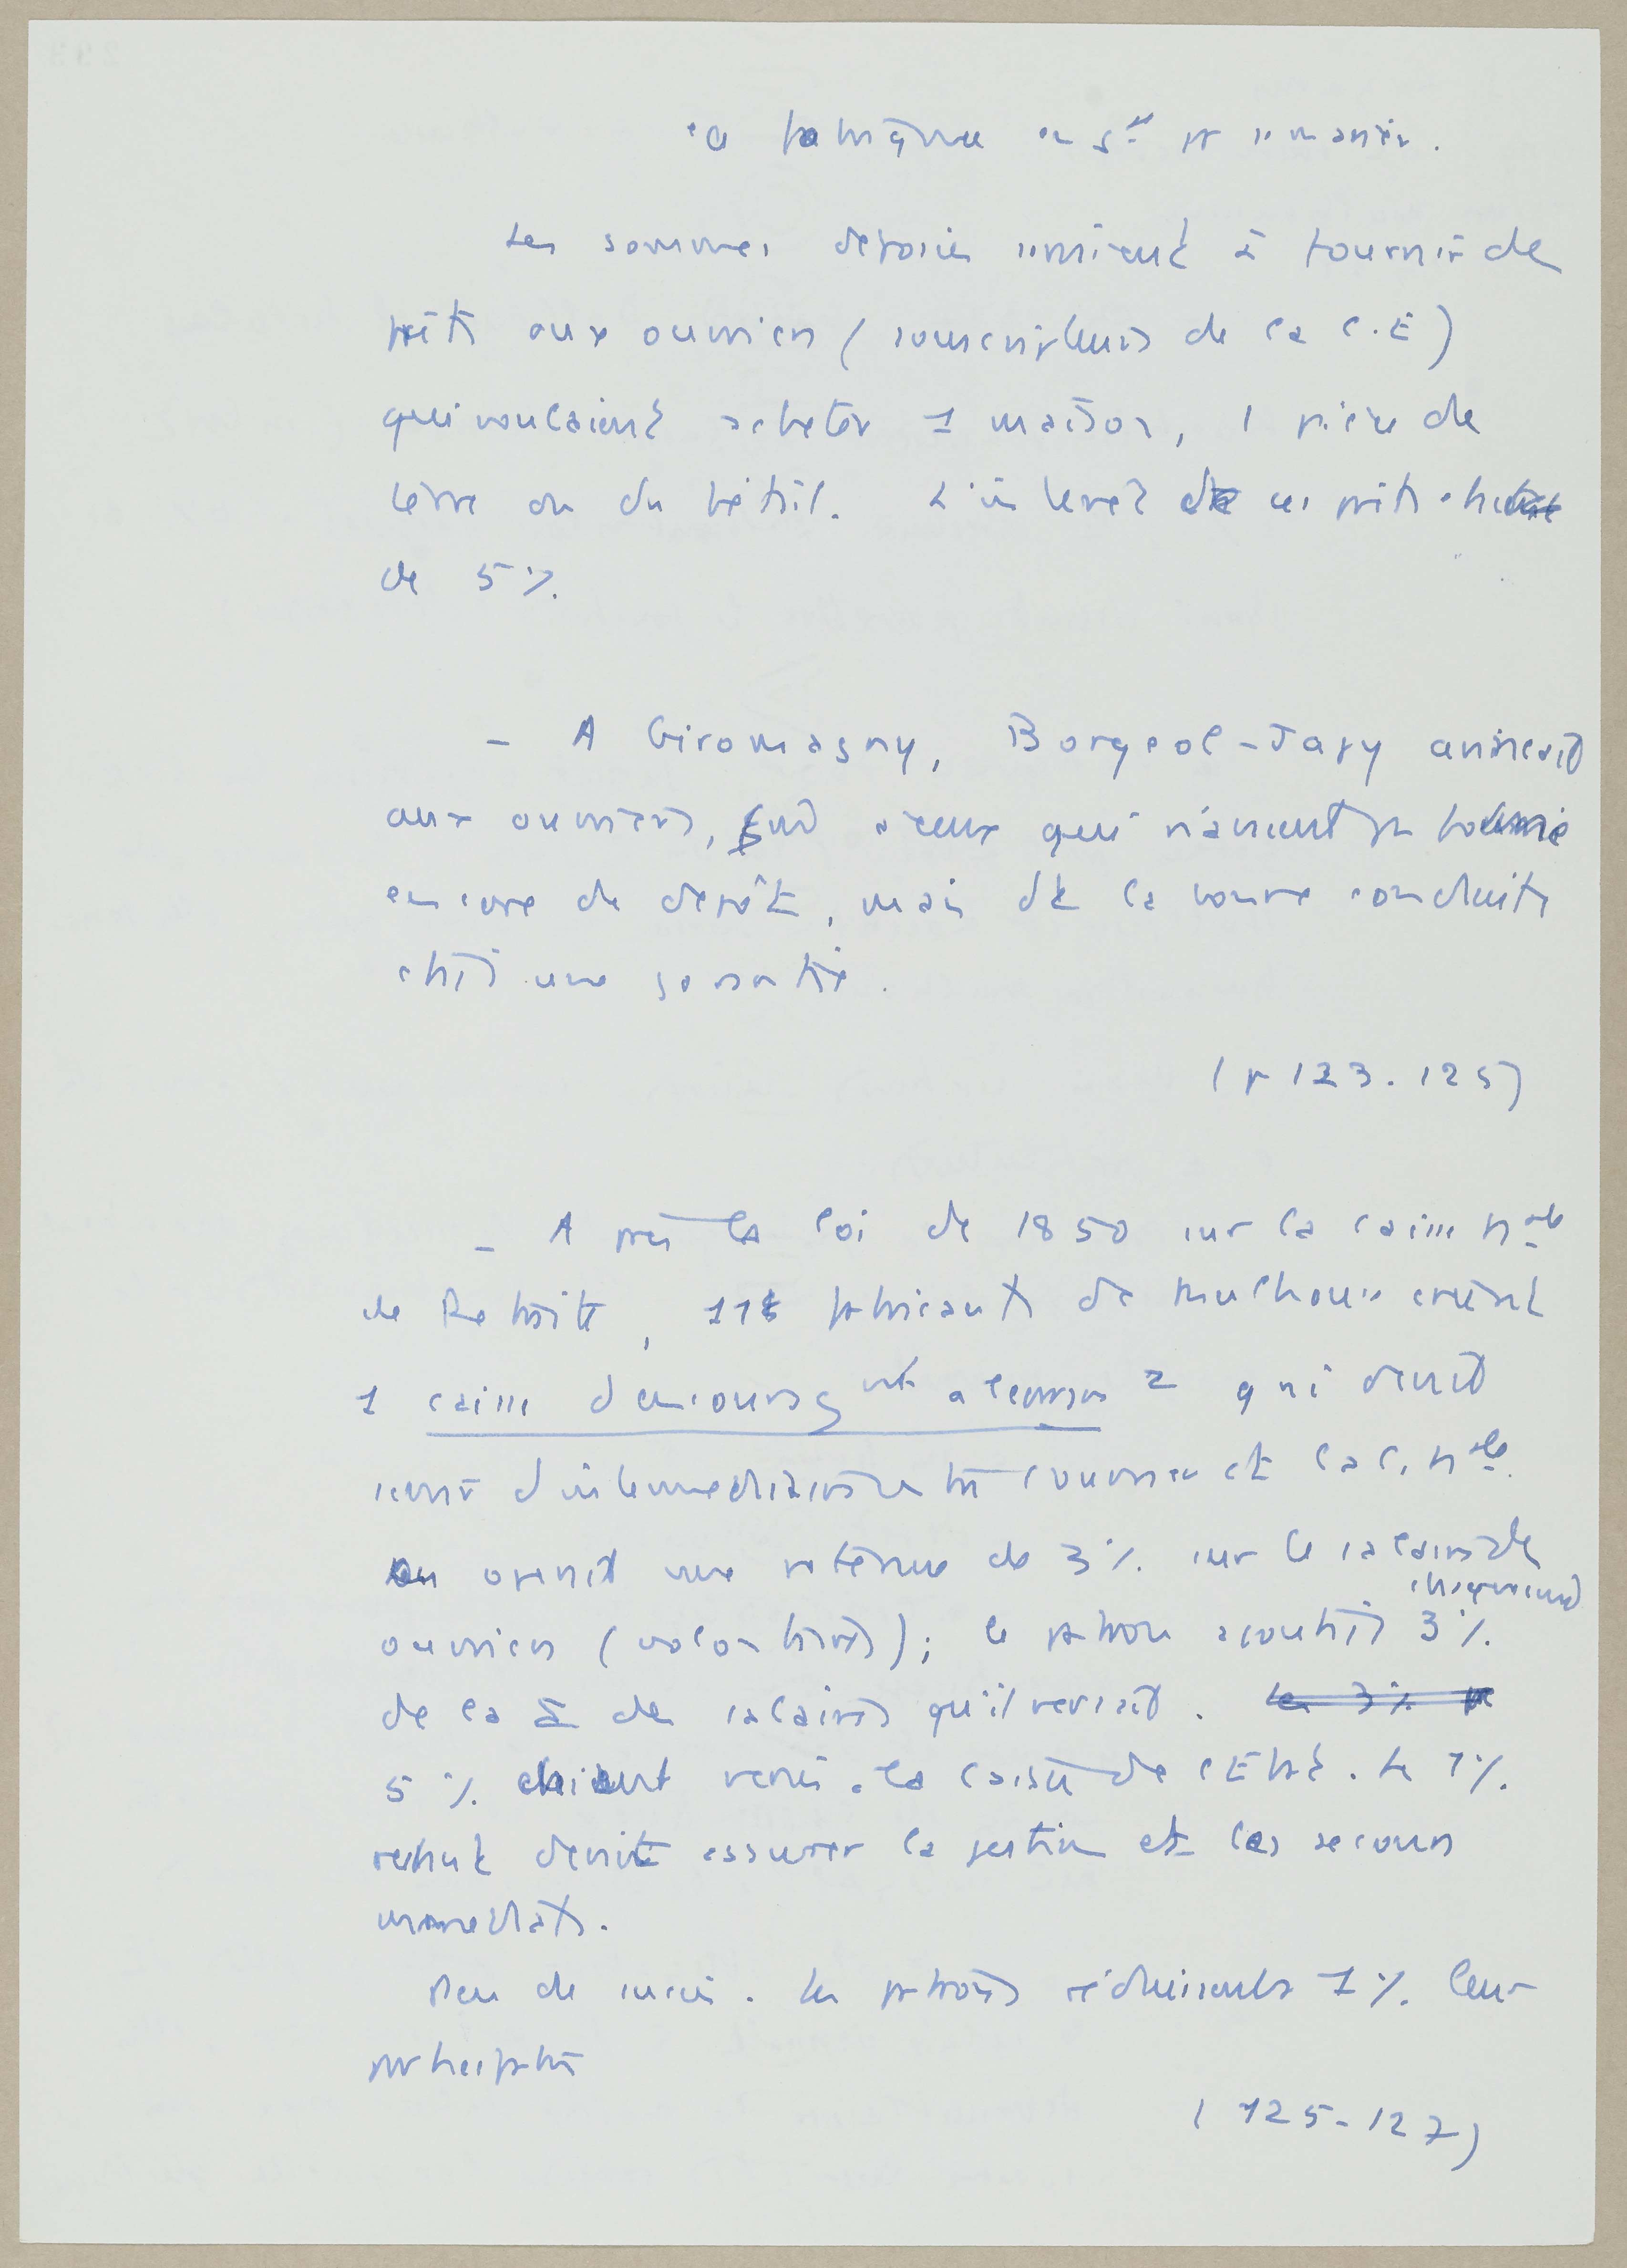 la fabrique en 5 p semaine.
Les sommes déposées servaient à fournir des
prêts aux ouvriers (souscripteurs de la C.E)
qui voulaient acheter 1 maison, 1 pièce de
terre ou du bétail. L'intérêt de ces prêts était
de 5 %.
- A Giromagny, Boigeol-Japy avançait
aux ouvriers, à ceux qui n'avaient pas
encore de dépôt, mais dt la bonne conduite
était une garantie.
(p 123.125)
- Après la loi de 1850 sur la caisse Nale
de Retraite, 11 fabricants de Mulhouse créèrent
1 caisse d'encouragnt à l'épargne qui devait
servir d'intermédiaire entre l'ouvrier et la C. Nle.
On opérait une retenue de 3 % sur le salaire des
ouvriers (volontaires); le patron ajoutait 3 %
chiquement
de la Σ des salaires qu'il versait. Les 3 %
5 % étaient versés à la caisse de l'Etat. Le 1 %
restant devait assurer la gestion et les secours
immédiats.
Peu de succès. Les patrons réduisirent à 1 % leur
participation
(125-127)